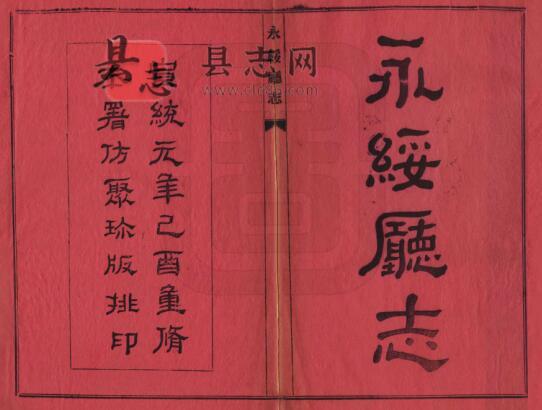 永綏廳志
永綏廳志
統元年己酉重脩
署仿聚珍版排印
县志
县志网